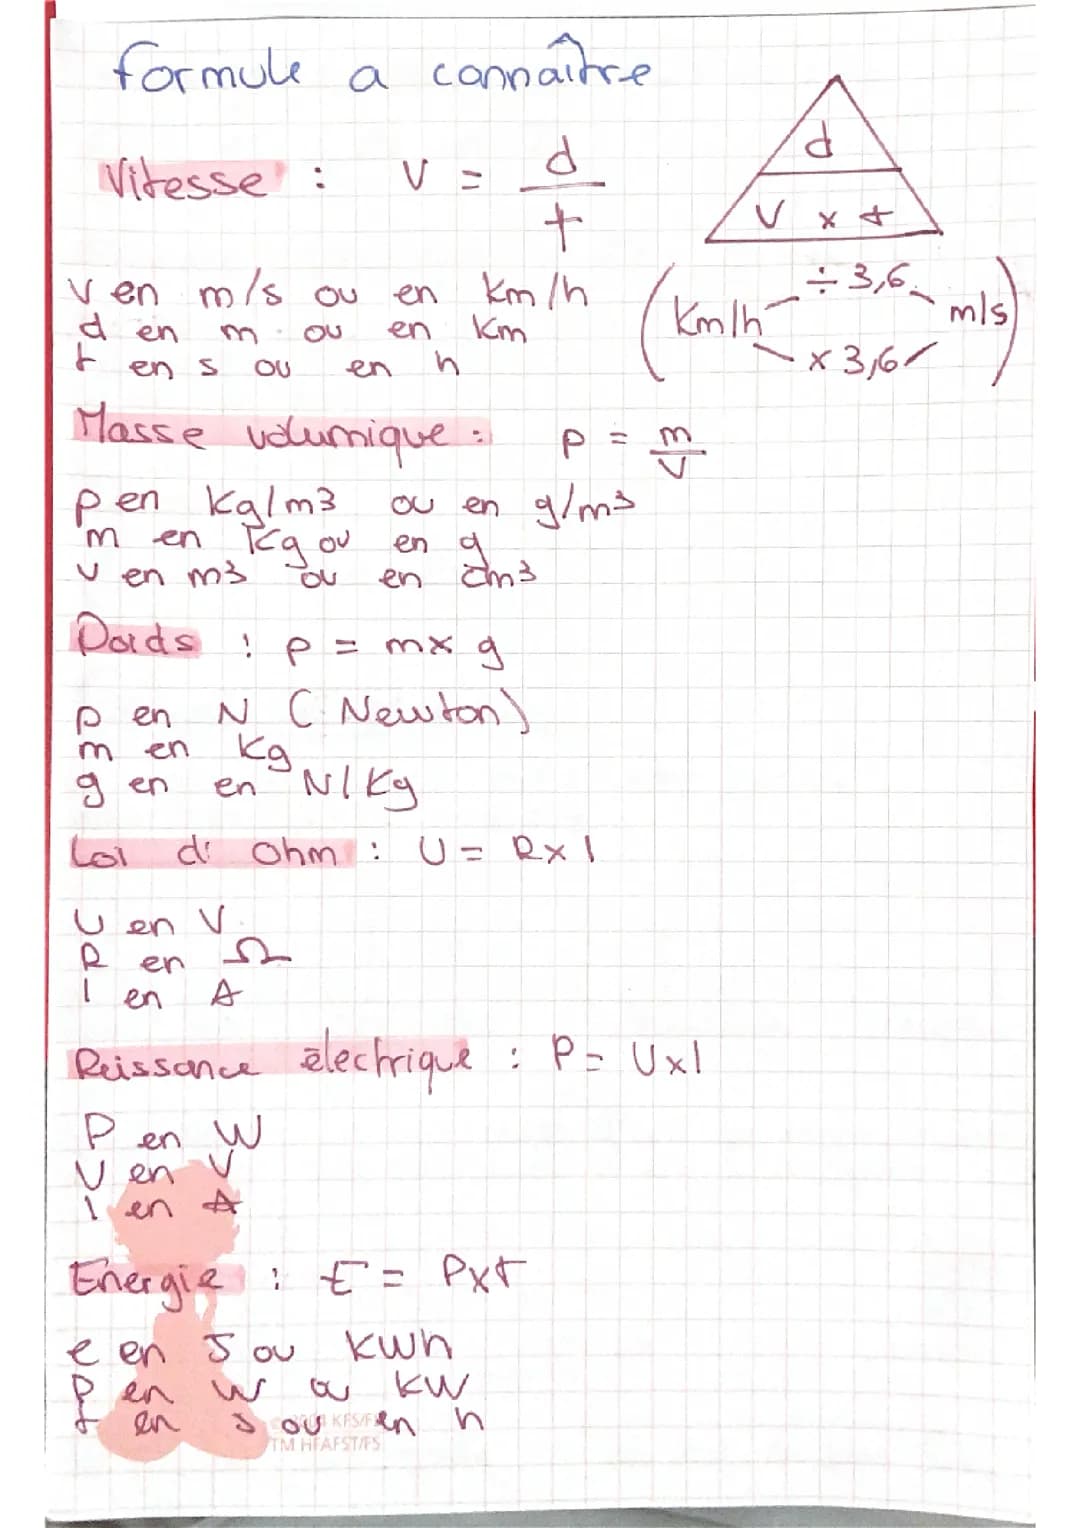 formule a connaître
Vitesse : V = d/t
d
V x t
v en m/s ou en Km/h
d en m ou en Km
t en s ou en h
(Km/h ÷ 3,6 m/s)
x 3,6
Masse volumique : ρ = m/V
ρ en Kg/m3 ou en g/m3
m en Kg ou en g
v en m3 ou en cm3
Poids : P = m x g
p en N (Newton)
m en Kg
g en en N/Kg
Loi d' Ohm : U = R x I
U en V
R en Ω
I en A
Puissance électrique : P = U x I
P en W
U en V
I en A
Energie : E = P x t
e en J ou KWh
P en W ou KW
t en s ou en h